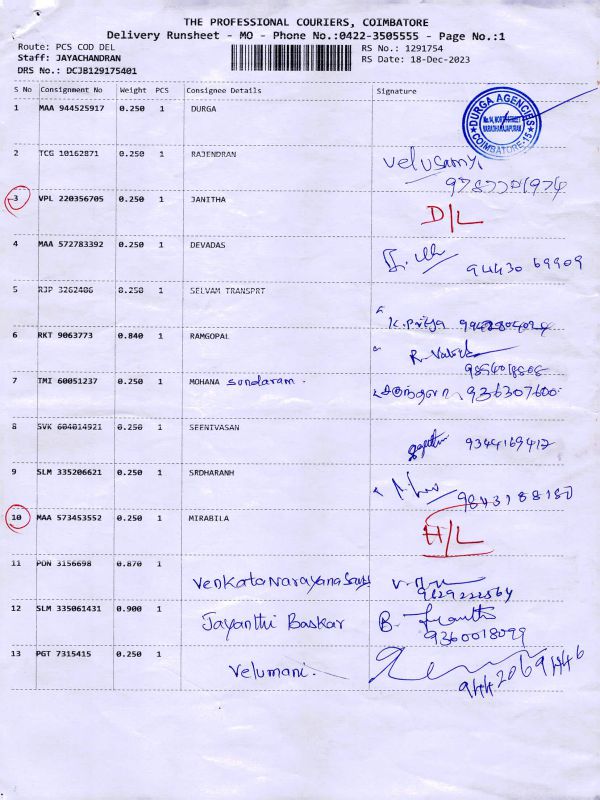 THE PROFESSIONAL COURIERS, COIMBATORE
Delivery Runsheet - MO - Phone No.:0422-3505555 - Page No.:1
Route: PCS COD DEL
RS No.: 1291754
Staff: JAYACHANDRAN
RS Date: 18-Dec-2023
DRS No.: DCJB129175401
S No Consignment No Weight PCS Consignee Details Signature
1 MAA 944525917 0.250 1 DURGA
DURGA AGENCIES
COIMBATORE-15
2 TCG 10162871 0.250 1 RAJENDRAN Velusamy
3 VPL 220356705 0.250 1 JANITHA D/L
4 MAA 572783392 0.250 1 DEVADAS
94430 69909
5 RJP 3262406 0.250 1 SELVAM TRANSPRT
K. Priya
6 RKT 9063773 0.840 1 RAMGOPAL
7 TMI 60051237 0.250 1 MOHANA Sundaram. 936307600
8 SVK 604014921 0.250 1 SEENIVASAN
9344169417
9 SLM 335206621 0.250 1 SRDHARANH
9843188180
10 MAA 573453552 0.250 1 MIRABILA H/L
11 PON 3156698 0.870 1 Venkata Narayana
9629222564
12 SLM 335061431 0.900 1 Jayanthi Baskar B.
9360018099
13 PGT 7315415 0.250 1 Velumani.
9442069446